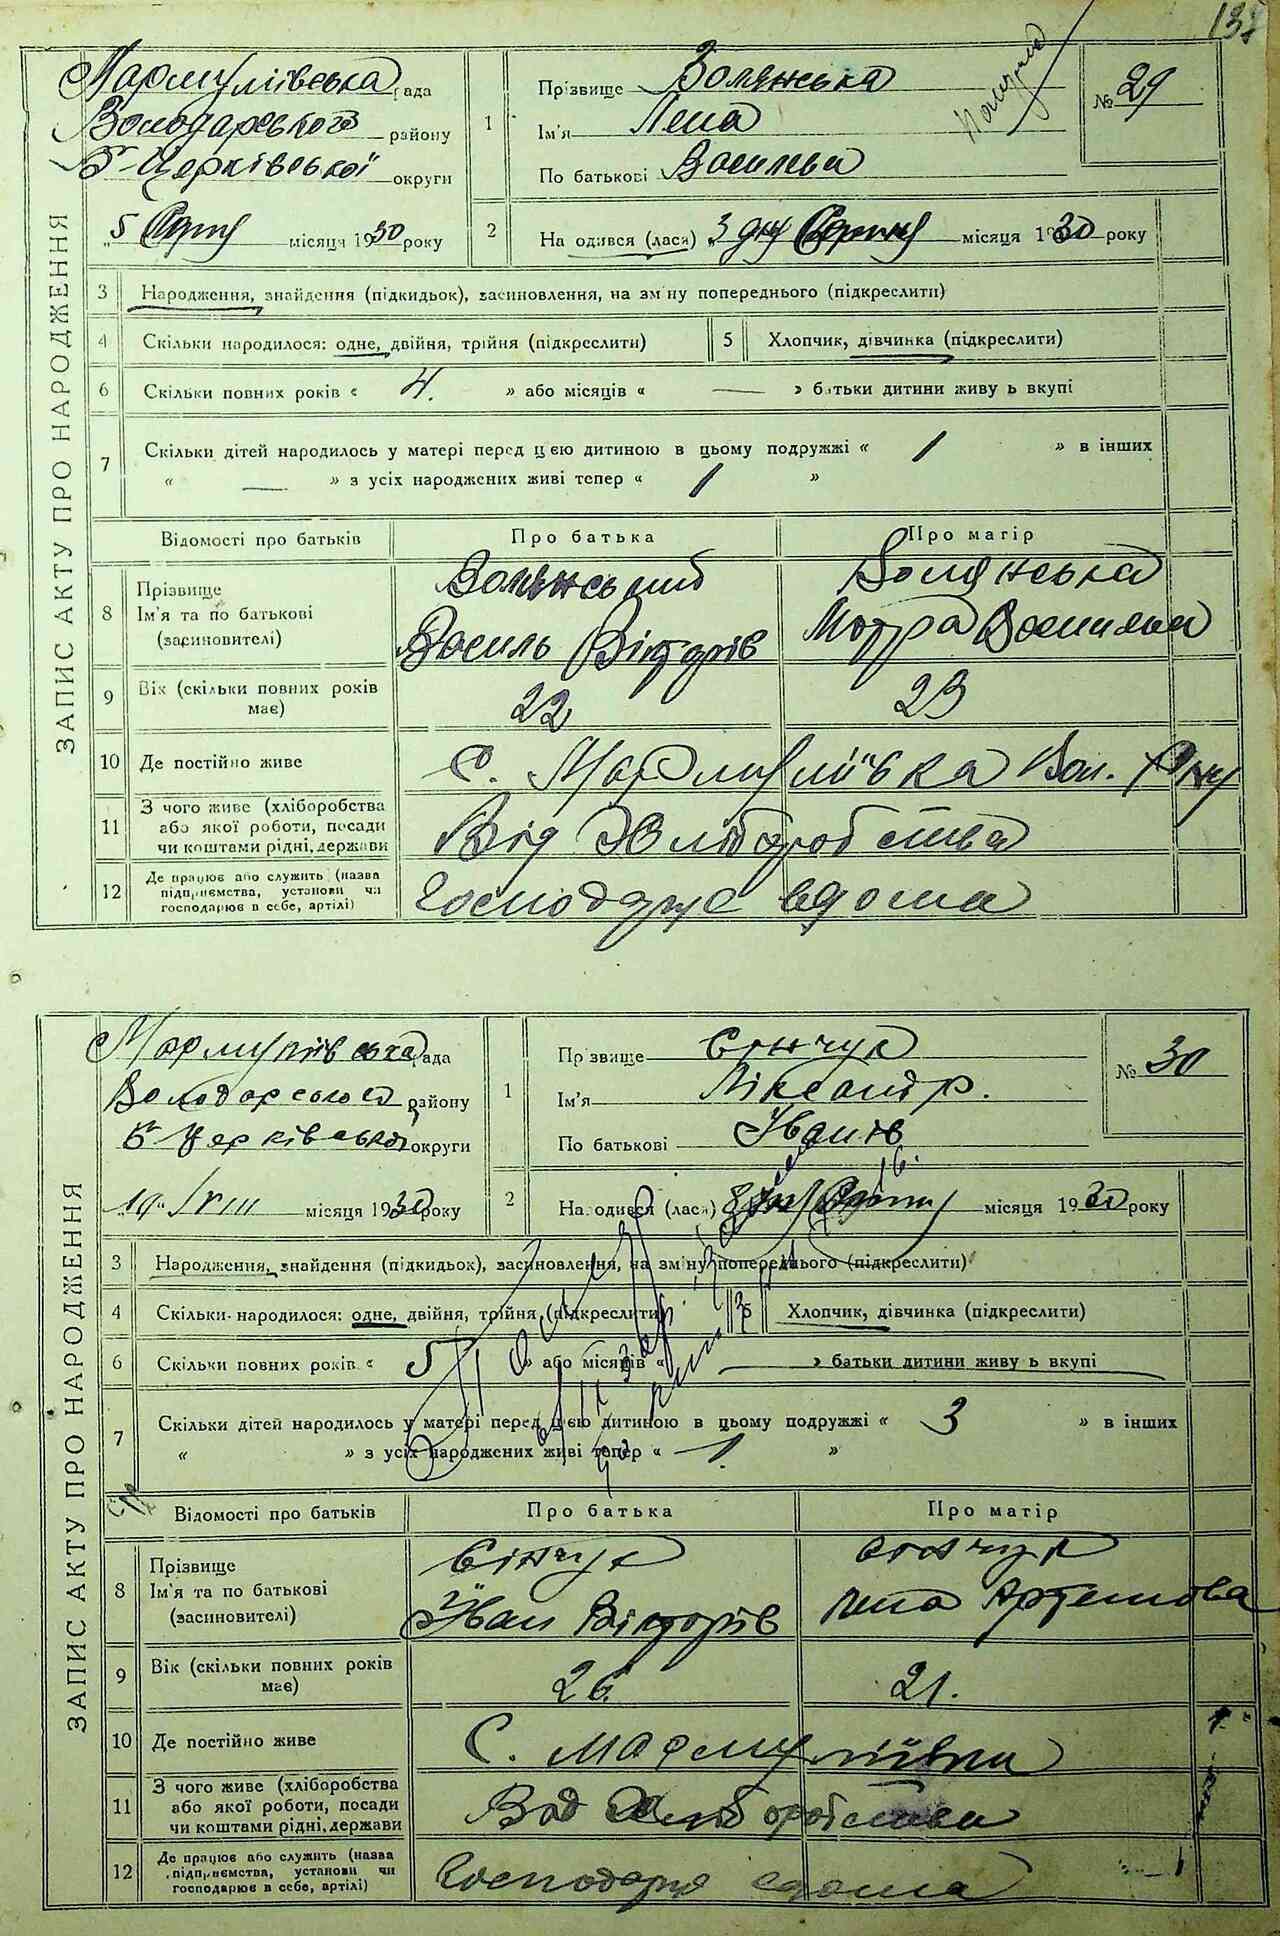 ЗАПИС АКТУ ПРО НАРОДЖЕННЯ
Мармуліївська рада
Володарського району
Б-Церківської округи
„5 Серпня місяця 1930 року
1
Прізвище Волянська
Ім'я Лена
По батькові Васильва
№ 29
2
На одився (лася) „3 дня Серпня місяця 1930 року
3 Народження, знайдення (підкидьок), засиновлення, на зм ну попереднього (підкреслити)
4 Скільки народилося: одне, двійня, трійня (підкреслити)
5 Хлопчик, дівчинка (підкреслити)
6 Скільки повних років « 4. » або місяців « — » батьки дитини живу ь вкупі
7 Скільки дітей народилось у матері перед цією дитиною в цьому подружжі « 1 » в інших
« — » з усіх народжених живі тепер « 1 »
Відомості про батьків Про батька Про матір
8 Прізвище
Ім'я та по батькові
(засиновителі)
Волянський
Василь Вікторів
Волянська
Мотра Васильва
9 Вік (скільки повних років має) 22 23
10 Де постійно живе С. Мармуліївка Вол. р-ну
11 З чого живе (хліборобства
або якої роботи, посади
чи коштами рідні, держави
Від Хліборобства
12 Де працює або служить (назва
підприємства, установи чи
господарює в себе, артілі)
Господарує вдома
ЗАПИС АКТУ ПРО НАРОДЖЕННЯ
Мармуліївська рада
Володарського району
Б-Церківської округи
„10" VIII місяця 1930 року
1
Пр звище Єнчук
Ім'я Ліксандр.
По батькові Іванів
№ 30
2
На одився (лася) 8 дня Серпня місяця 1930 року
3 Народження, знайдення (підкидьок), засиновлення, на зміну попереднього (підкреслити)
4 Скільки народилося: одне, двійня, трійня (підкреслити)
5 Хлопчик, дівчинка (підкреслити)
6 Скільки повних років « 5 » або місяців « — » батьки дитини живу ь вкупі
7 Скільки дітей народилось у матері перед цією дитиною в цьому подружжі « 3 » в інших
« » з усіх народжених живі тепер « 1. »
Відомості про батьків Про батька Про матір
8 Прізвище
Ім'я та по батькові
(засиновителі)
Іван Вікторів
Лена Артемова
9 Вік (скільки повних років має) 26. 21.
10 Де постійно живе С. Мармуліївка
11 З чого живе (хліборобства
або якої роботи, посади
чи коштами рідні, держави
Від Хліборобства
12 Де працює або служить (назва
підприємства, установи чи
господарює в себе, артілі)
Господарує вдома